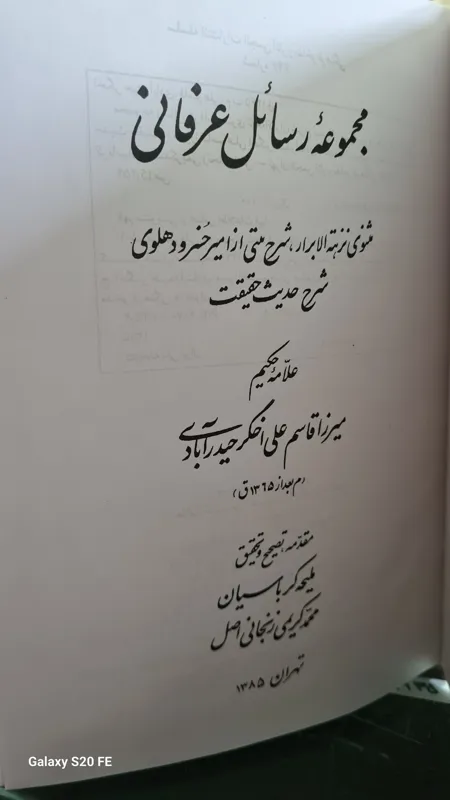 مجموعهٔ رسائل عرفانی
مثنوی نزهة الابرار، شرح بیتی از امیر خسرو دهلوی
شرح حدیث حقیقت
علّامهٔ حکیم
میرزا قاسم علی اخگر حیدرآبادی
(م بعد از ۱۳۶۵ ق)
مقدّمه، تصحیح و تحقیق
ملیحه کرباسیان
محمّد کریمی زنجانی اصل
تهران ۱۳۸۵
Galaxy S20 FE